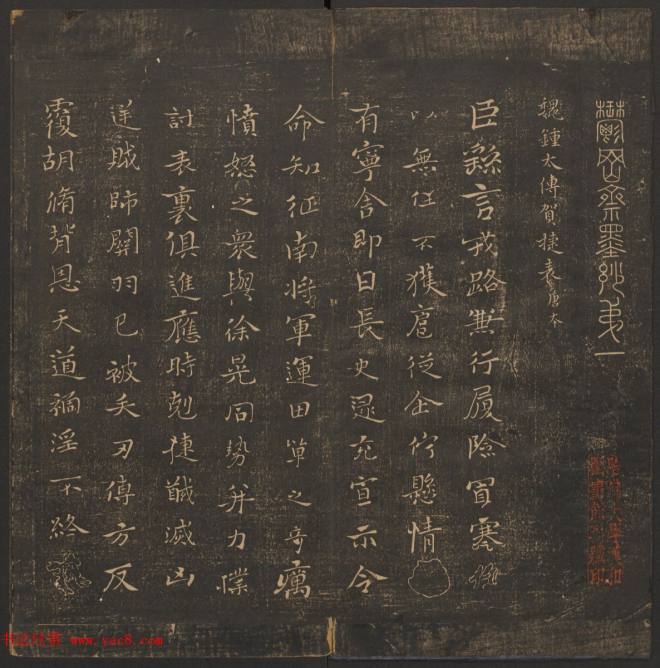 鬱岡齋墨妙第一
魏鍾太傅賀捷表唐本
臣繇言戎路兼行履險冒寒
以無任不獲扈從企佇懸情
有寧舍即日長史逯充宣示令
命知征南將軍運田單之奇厲
憤怒之眾與徐晃同勢并力撲
討表裏俱進應時剋捷馘滅凶
逆賊帥關羽已被矢刃傅方反
覆胡脩背恩天道禍淫不終
书法欣赏 www.yac8.com